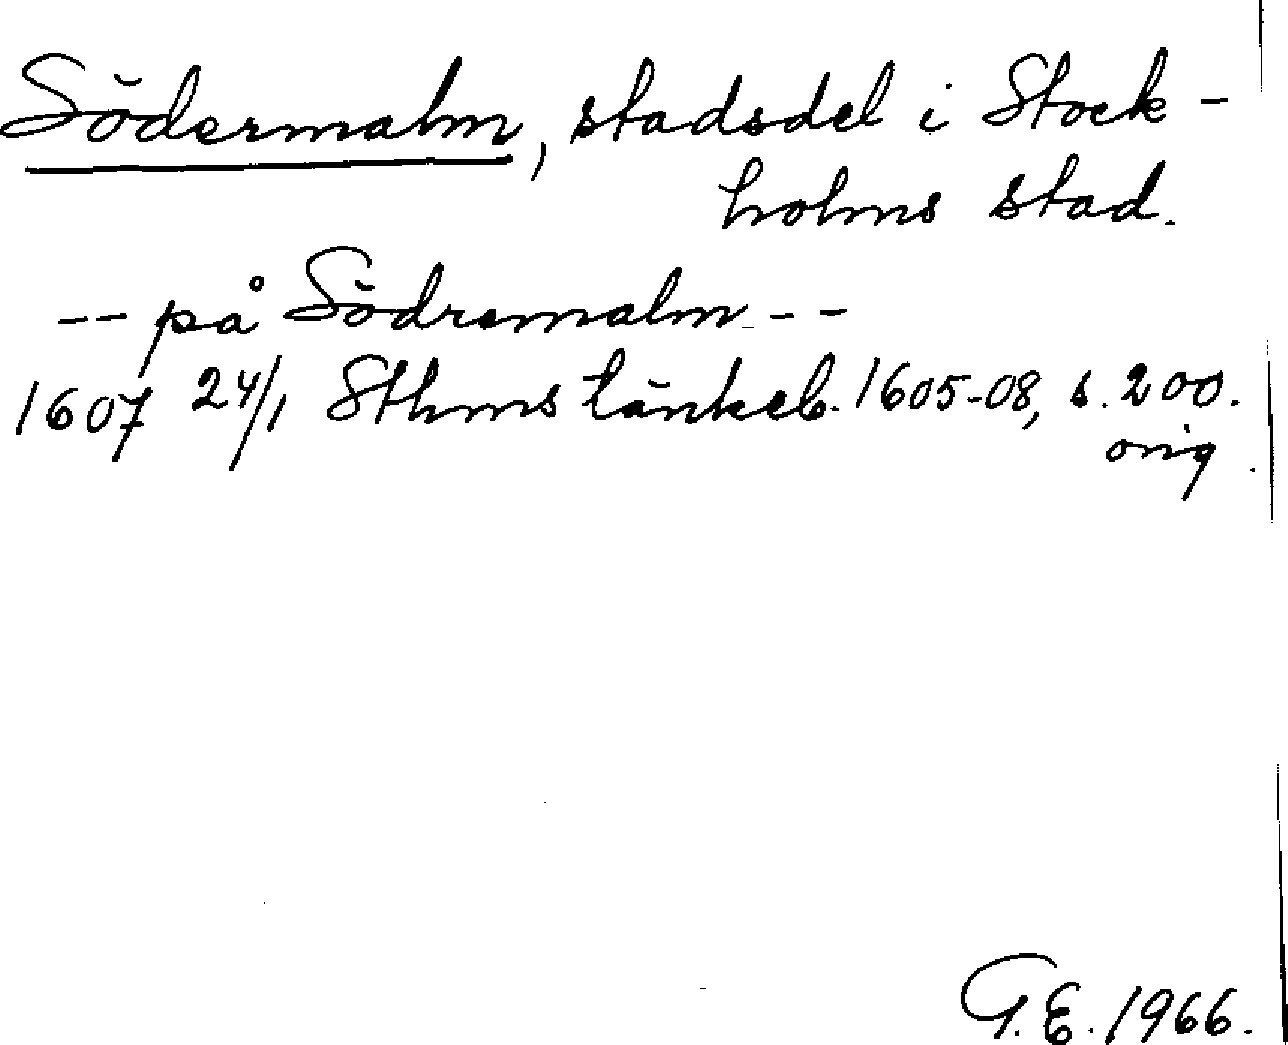 Södermalm, stadsdel i Stock-
holms stad.
-- på Södremalm --
1607 24/1 Sthms tänkeb. 1605-08, s. 200.
orig.
G.E. 1966.